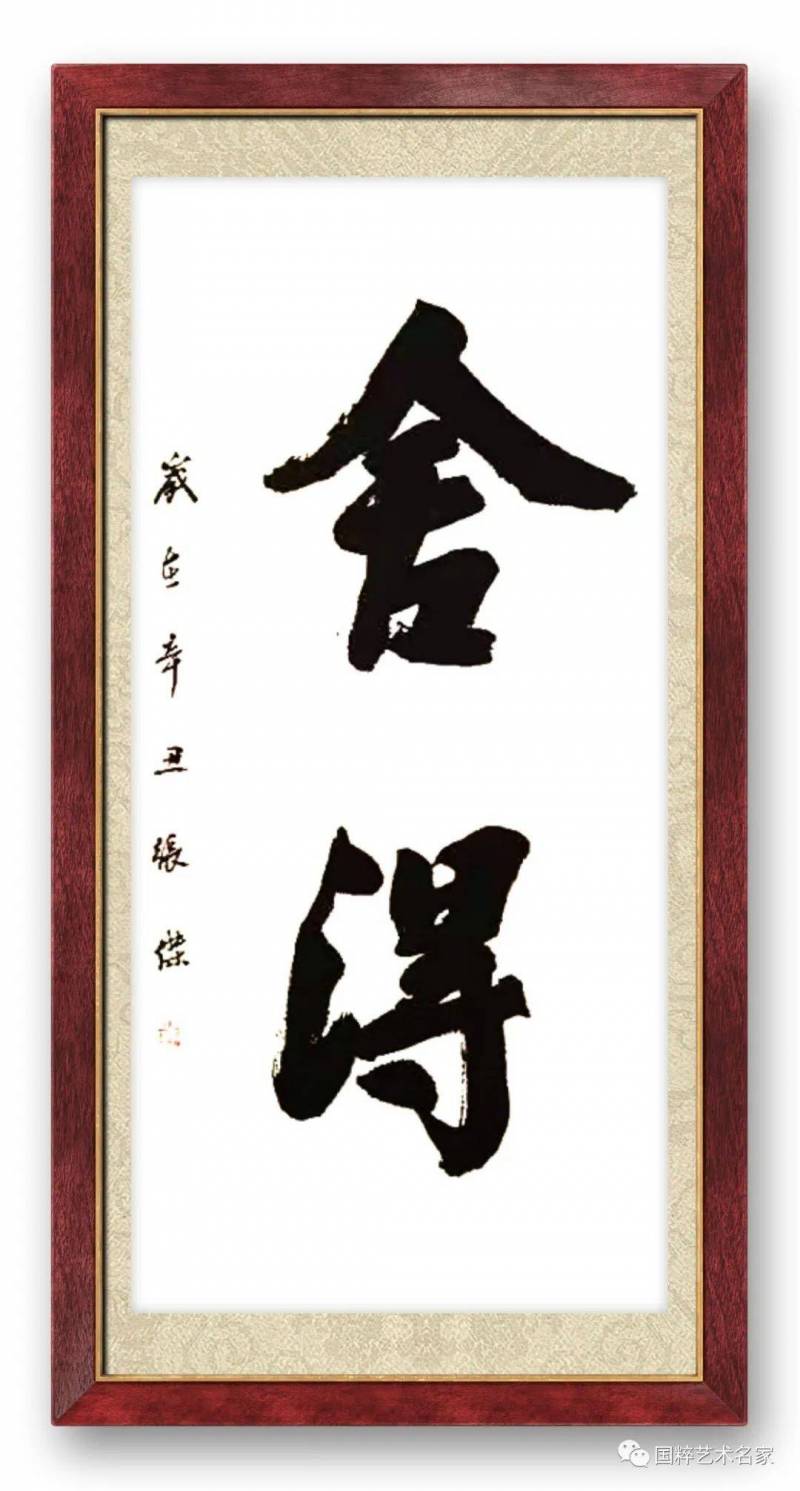 舍得
歲在辛丑張傑
国粹艺术名家